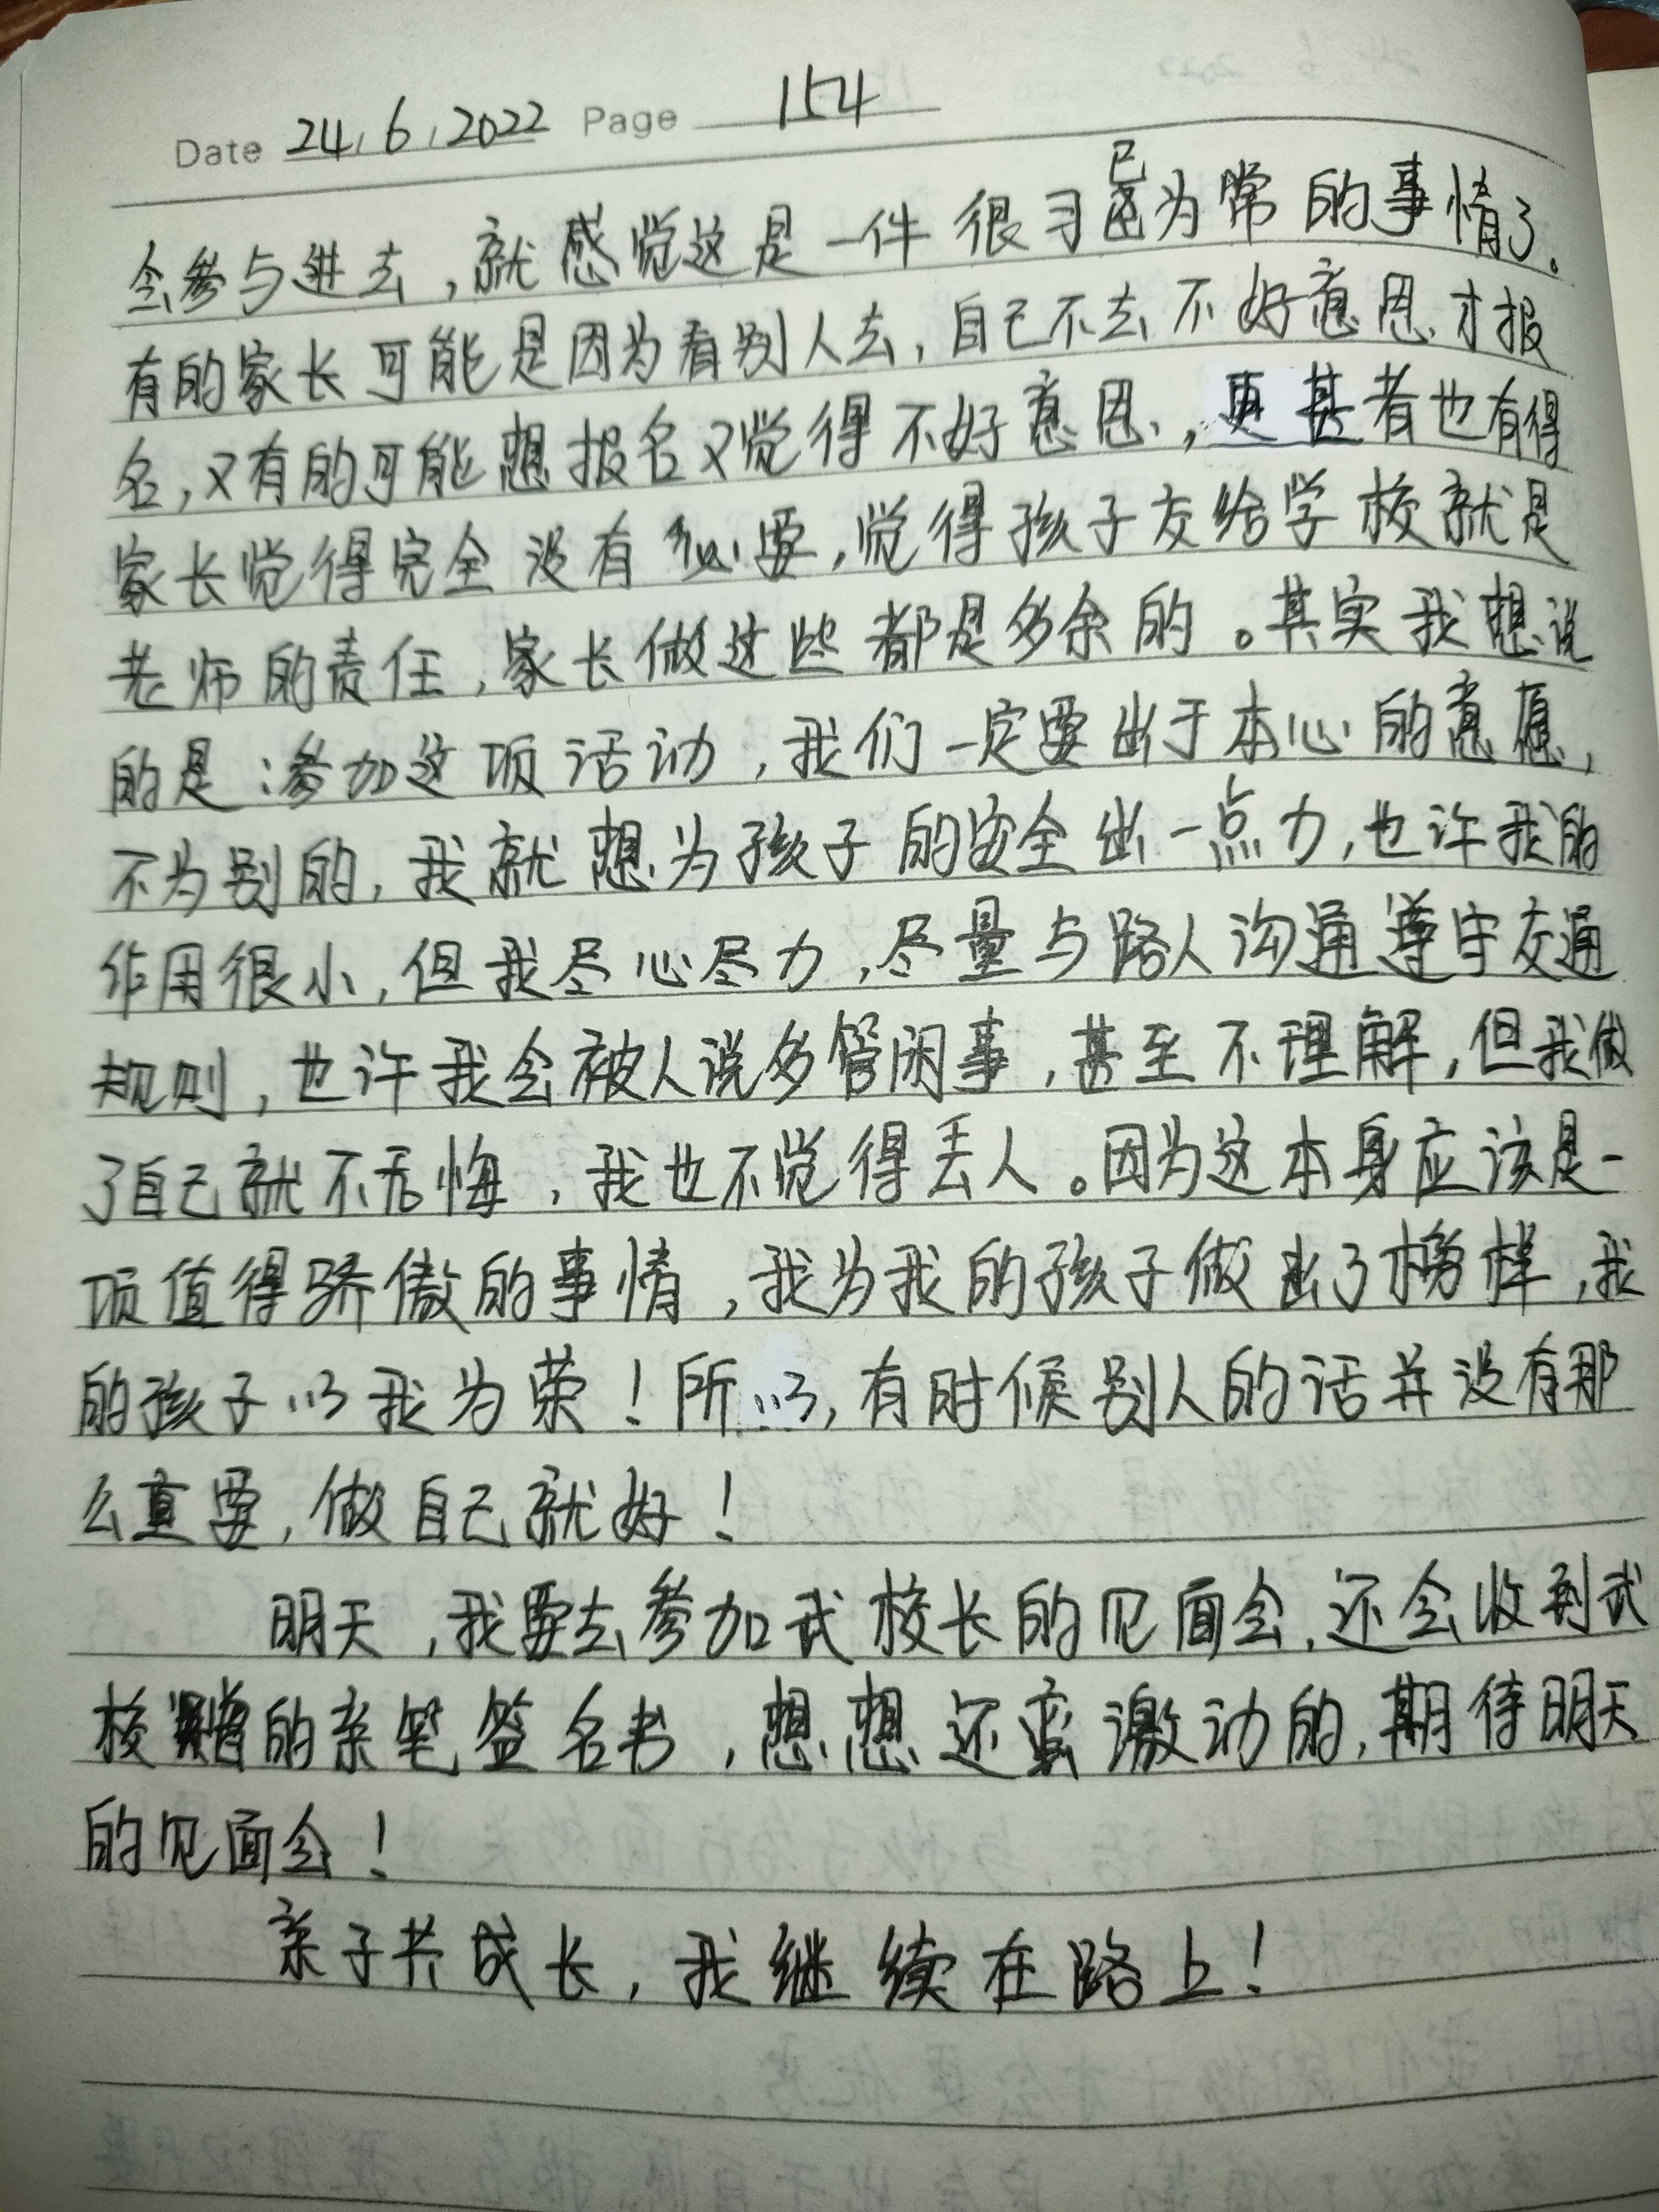 Date 24.6.2022 Page 154
会参与进去，就感觉这是一件很习已为常的事情了。
有的家长可能是因为看别人去，自己不去不好意思才报
名，又有的可能想报名又觉得不好意思，更甚者也有得
家长觉得完全没有必要，觉得孩子交给学校就是
老师的责任，家长做这些都是多余的。其实我想说
的是：参加这项活动，我们一定要出于本心的意愿，
不为别的，我就想为孩子的安全出一点力，也许我的
作用很小，但我尽心尽力，尽量与路人沟通遵守交通
规则，也许我会被人说多管闲事，甚至不理解，但我做
了自己就不后悔，我也不觉得丢人。因为这本身应该是一
项值得骄傲的事情，我为我的孩子做出了榜样，我
的孩子以我为荣！所以，有时候别人的话并没有那
么重要，做自己就好！
明天，我要去参加武校长的见面会，还会收到武
校赠的亲笔签名书，想想还蛮激动的，期待明天
的见面会！
亲子共成长，我继续在路上！